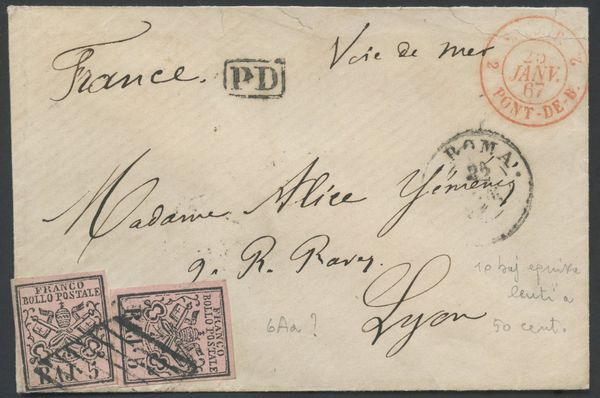 France.
PD
Voie de mer
2 25 2
JANV.
67
PONT-DE-B.
ROMA
22
Madame Alice Yéméniz
9. R. Ravez.
Lyon
10 baj equiva
lenti a
50 cent.
6Aa ?
FRANCO
BOLLO POSTALE
BAJ. 5
FRANCO
BOLLO POSTALE
BAJ. 5